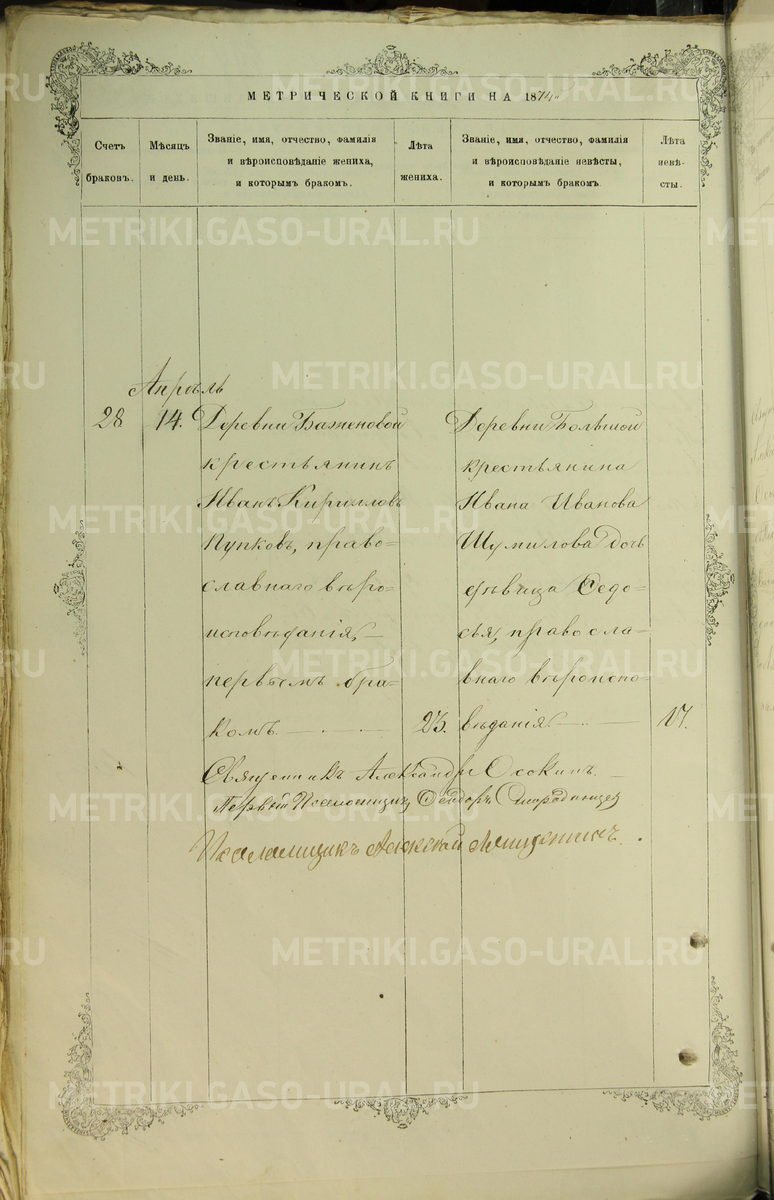 МЕТРИЧЕСКОЙ КНИГИ НА 1874
Счетъ браковъ.
Мѣсяцъ и день.
Званіе, имя, отчество, фамилія
и вѣроисповѣданіе жениха,
и которымъ бракомъ.
Лѣта жениха.
Званіе, имя, отчество, фамилія
и вѣроисповѣданіе невѣсты,
и которымъ бракомъ.
Лѣта невѣ-
сты.
Апрѣль
28 14. Деревни Баженовой
крестьянинъ
Иванъ Кирилловъ
Пупковъ, право=
славнаго вѣро=
исповѣданія,
первымъ бра=
комъ. 23.
Деревни Большой
крестьянина
Ивана Иванова
Шумилова дочь
дѣвица Ѳедо=
сья, правосла=
внаго вѣроиспо=
вѣданія. 17.
Священникъ Александръ Осокинъ.
Первый Псаломщикъ Ѳедоръ
Псаломщикъ
METRIKI.GASO-URAL.RU